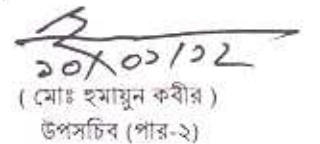 ১০/০১/১২
( মোঃ হুমায়ুন কবীর )
উপসচিব (পার-২)